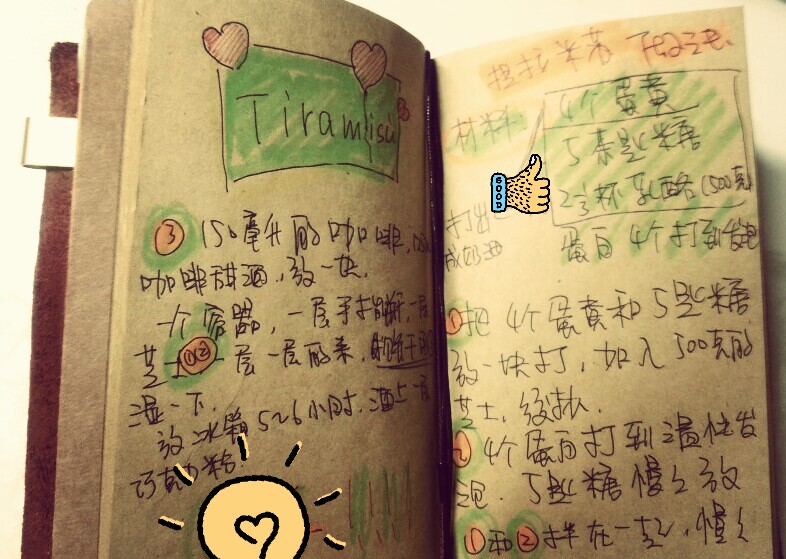 Tiramisu
③ 150毫升的咖啡,
咖啡甜酒,放一块.
一个容器,一层手指饼,一层
芝 ①② 一层一层的来,
湿一下.
放冰箱 5~6小时,洒上一层
巧克力粉.
提拉米苏
材料
4个蛋黄
5条匙糖
2杯乳酪(500克
蛋白4个打到发
打出
成奶油
GOOD
①把4个蛋黄和5匙糖
放一块打,加入500克的
芝士,
② 4个蛋白打到湿性发
泡.5匙糖慢慢放
①和②拌在一起,慢慢